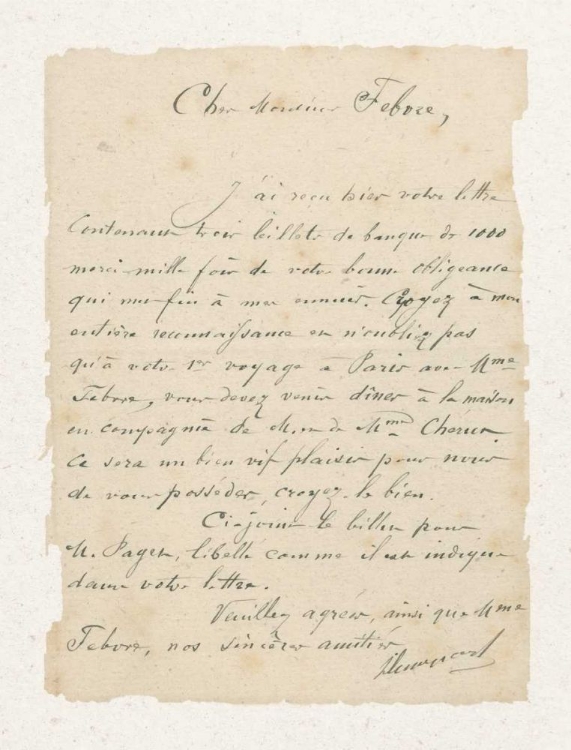 Cher Monsieur Febvre,
J'ai reçu hier votre lettre
Contenant trois billets de banque de 1000
merci mille fois de votre bonne obligeance
qui met fin à mes ennuis. Croyez à mon
entière reconnaissance et n'oubliez pas
qu'à votre 1er voyage à Paris avec Mme
Febvre, vous devez venir dîner à la maison
en compagnie de M. et de Mme
Ce sera un bien vif plaisir pour nous
de vous posséder, croyez-le bien.
Ci-joint le billet pour
M. Paget, libellé comme il est indiqué
dans votre lettre.
Veuillez agréer, ainsi que Mme
Febvre, nos sincères amitiés